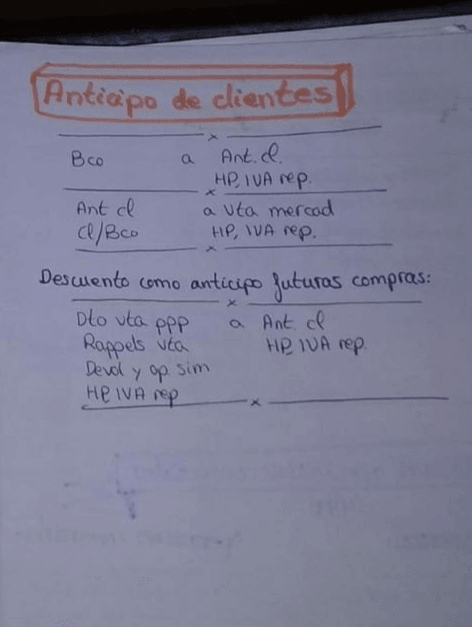 Anticipo de clientes
x
Bco a Ant. cl.
HP, IVA rep.
x
Ant cl a vta mercad
Cl/Bco HP, IVA rep.
x
Descuento como anticipo futuras compras:
x
Dto vta ppp a Ant. cl
Rappels vta HP, IVA rep.
Devol y op. sim
HP, IVA rep
x